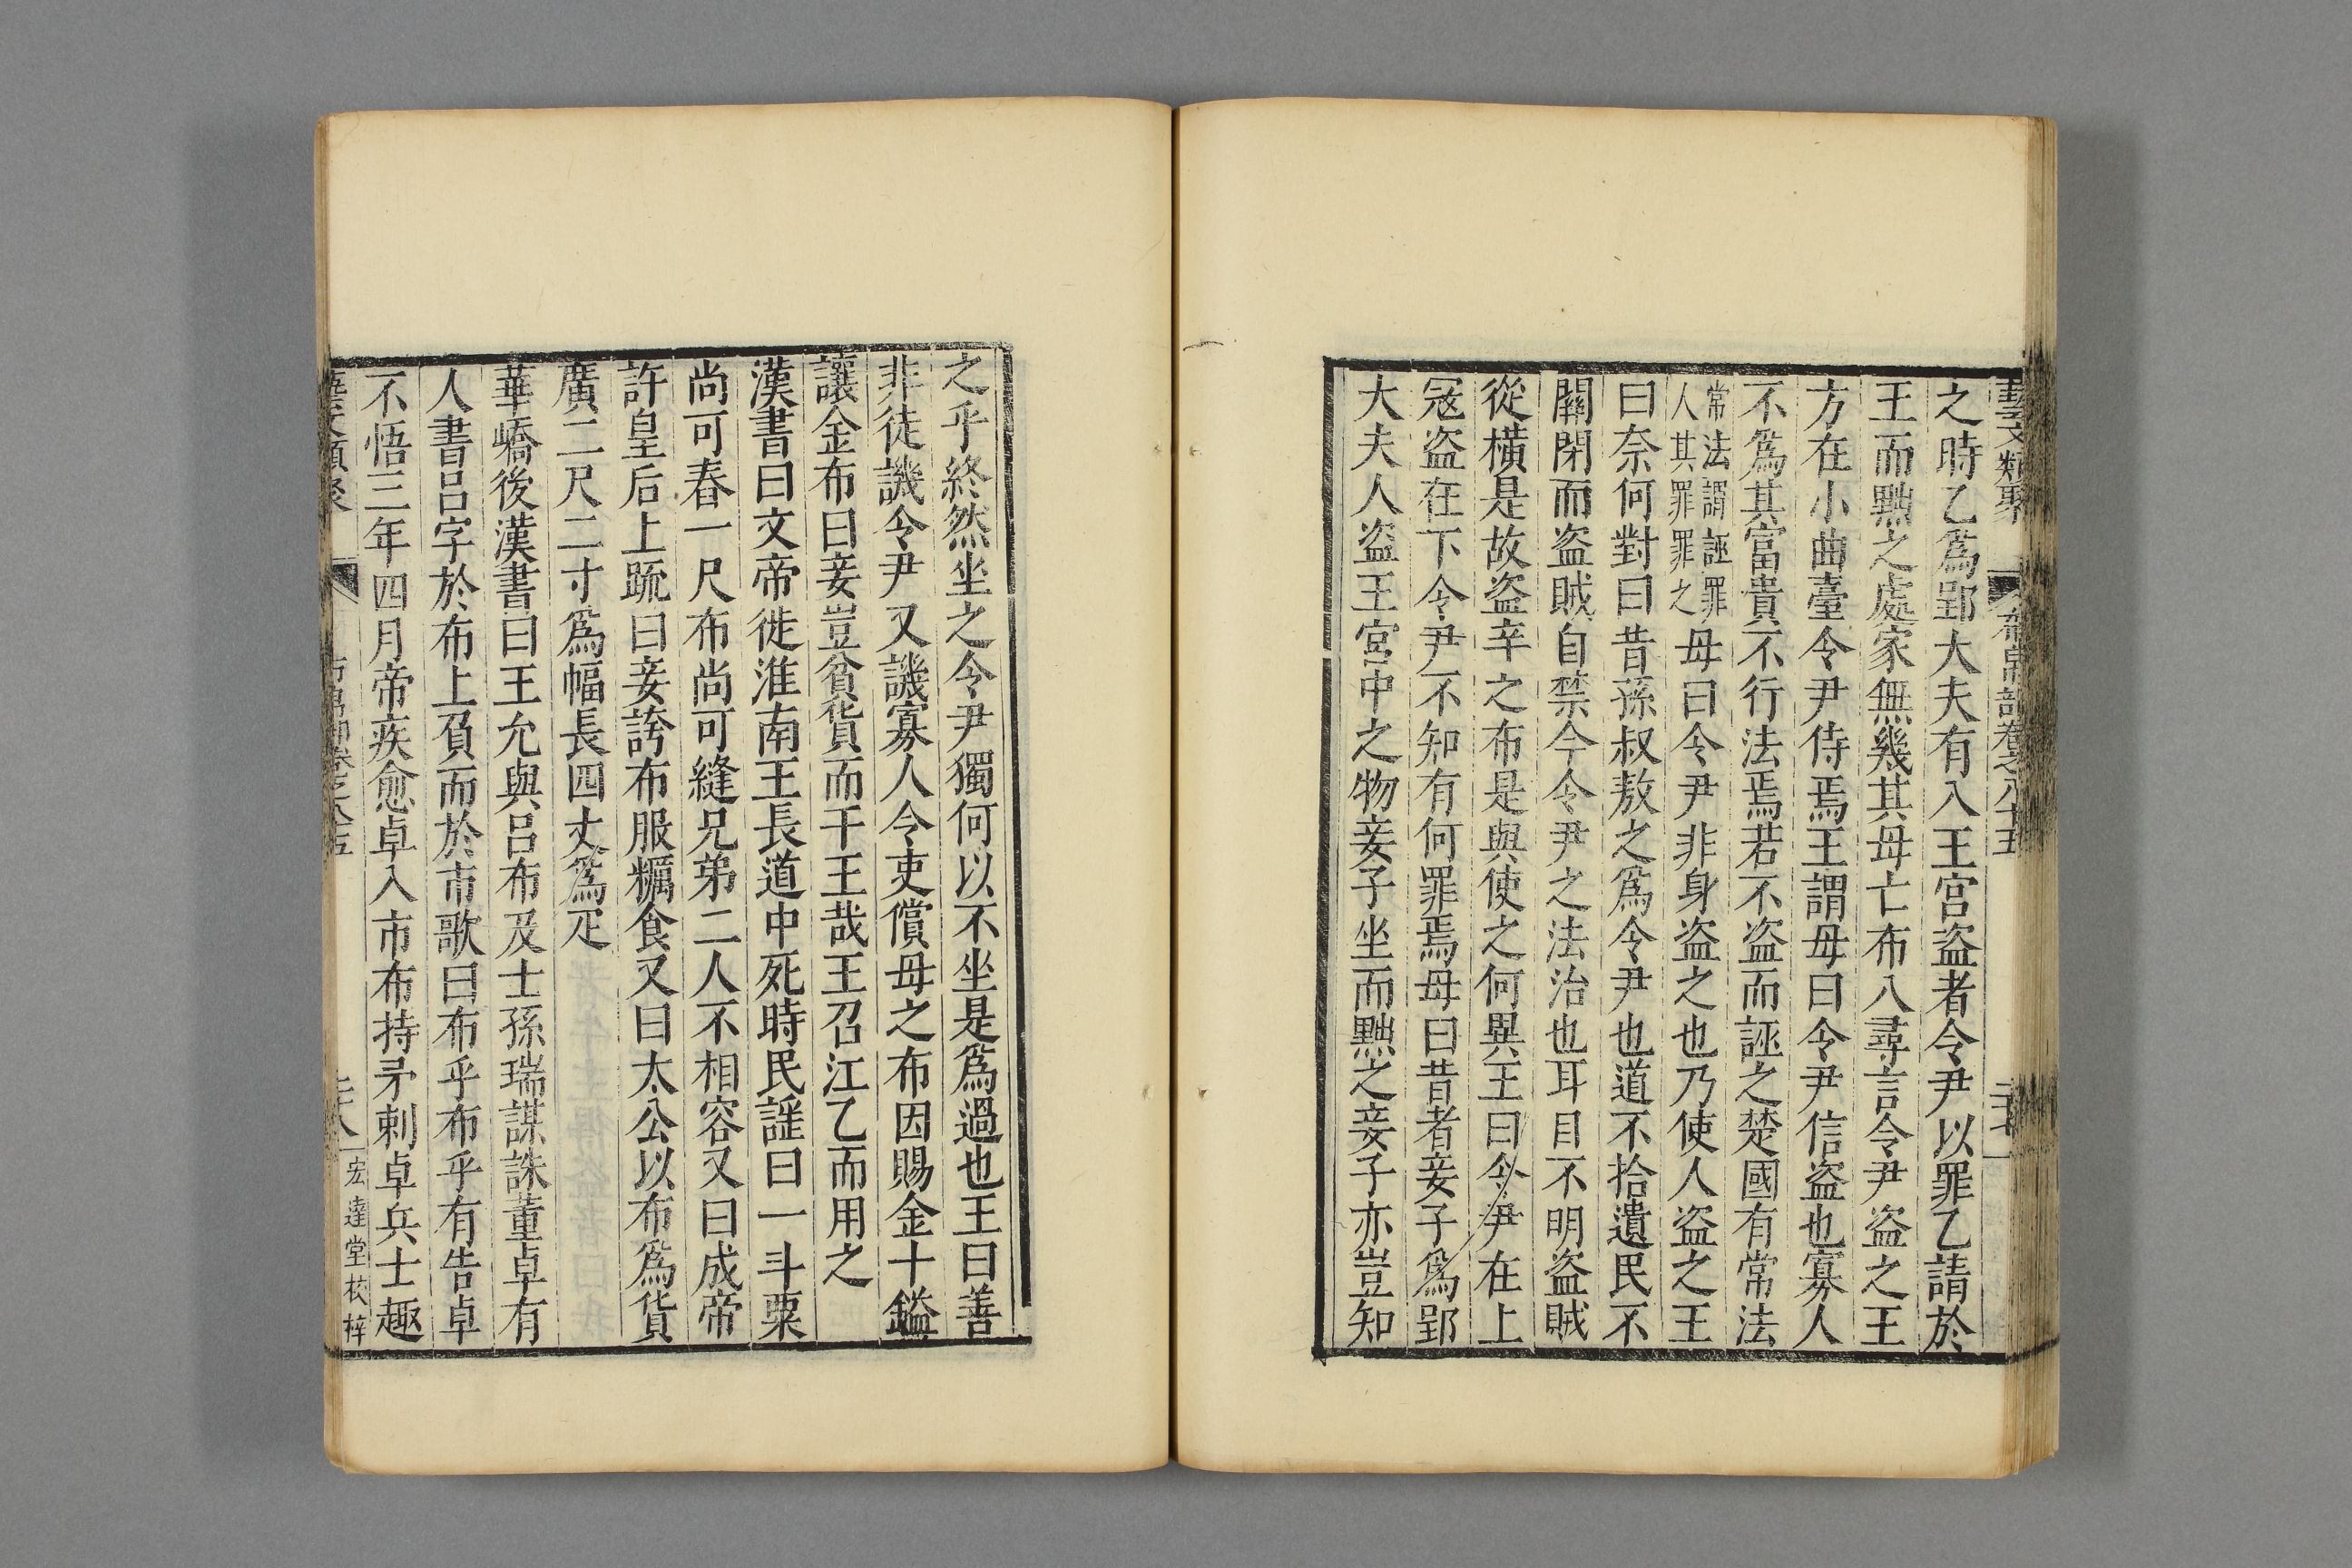 藝文類聚 布帛部卷之八十五
之時乙爲郢大夫有入王宮盗者令尹以罪乙請於
王而黜之處家無幾其母亡布八尋言令尹盗之王
方在小曲臺令尹侍焉王謂母曰令尹信盗也寡人
不爲其富貴不行法焉若不盗而誣之楚國有常法
常法謂誣罪
人其罪罪之
母曰令尹非身盗之也乃使人盗之王
曰奈何對曰昔孫叔敖之爲令尹也道不拾遺民不
關閉而盗賊自禁今令尹之法治也耳目不明盗賊
從橫是故盗辛之布是與使之何異王曰令尹在上
冦盗在下令尹不知有何罪焉母曰昔者妾子爲郢
大夫人盗王宮中之物妾子坐而黜之妾子亦豈知
之乎終然坐之令尹獨何以不坐是爲過也王曰善
非徒譏令尹又譏寡人令吏償母之布因賜金十鎰
讓金布曰妾豈貧貨而干王哉王召江乙而用之
漢書曰文帝徙淮南王長道中死時民謡曰一斗粟
尚可舂一尺布尚可縫兄弟二人不相容又曰成帝
許皇后上疏曰妾誇布服糲食又曰太公以布爲貨
廣二尺二寸爲幅長四丈爲疋
華嶠後漢書曰王允與呂布及士孫瑞謀誅董卓有
人書呂字於布上負而於市歌曰布乎布乎有告卓
不悟三年四月帝疾愈卓入市布持矛刺卓兵士趣
藝文類聚 布帛部卷之八五
宏達堂校梓